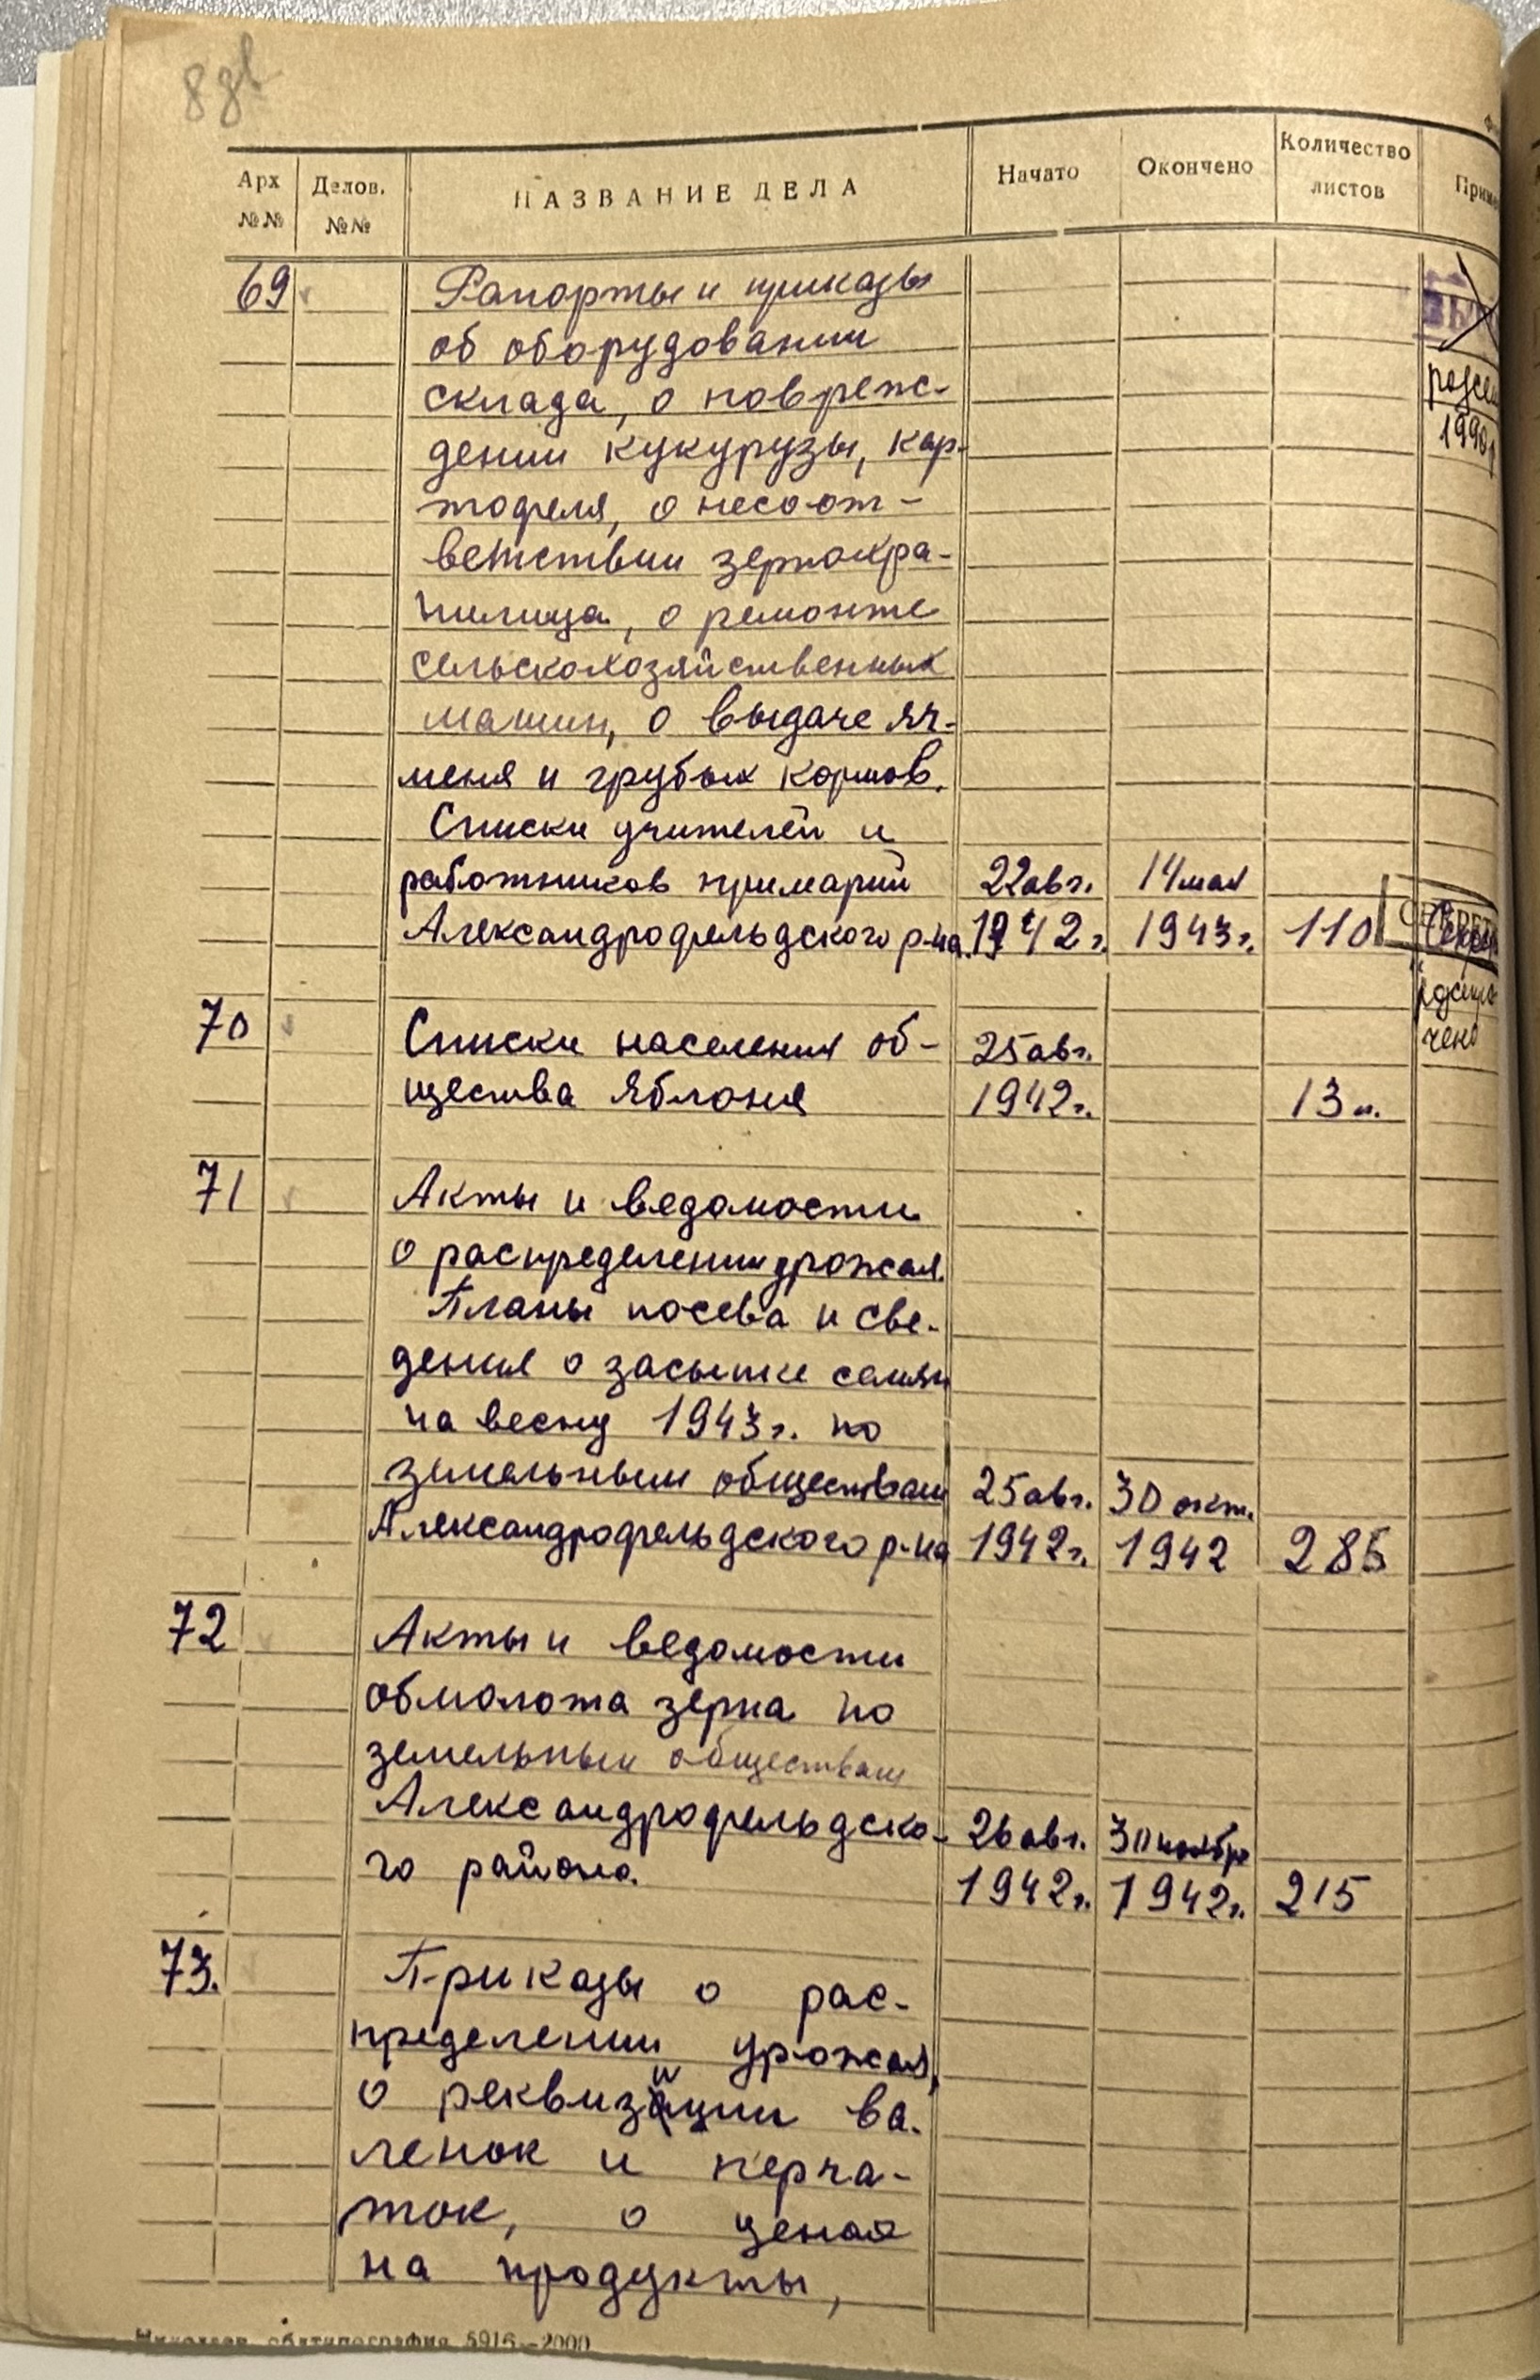 Арх №№ Делов. №№ НАЗВАНИЕ ДЕЛА Начато Окончено Количество листов
69 Рапорты и приказы
об оборудовании
склада, о повреж-
дении кукурузы, кар-
тофеля, о несоот-
ветствии зернохра-
нилища, о ремонте
сельскохозяйственных
машин, о выдаче яч-
меня и грубых кормов.
Списки учителей и
работников примарий 22 авг. 14 мая
Александрофельдского р-на. 1942 г. 1943 г. 110
70 Списки населения об- 25 авг.
щества Яблоня 1942 г. 13 л.
71 Акты и ведомости
о распределении урожая.
Планы посева и све-
дения о засыпке семян
на весну 1943 г. по
земельным обществам 25 авг. 30 окт.
Александрофельдского р-на 1942 г. 1942 285
72 Акты и ведомости
обмолота зерна по
земельным обществам
Александрофельдско- 26 авг. 30 ноября
го района. 1942 г. 1942 г. 215
73. Приказы о рас-
пределении урожая,
о реквизиции ва-
ленок и перча-
ток, о ценах
на продукты,
5916—2000